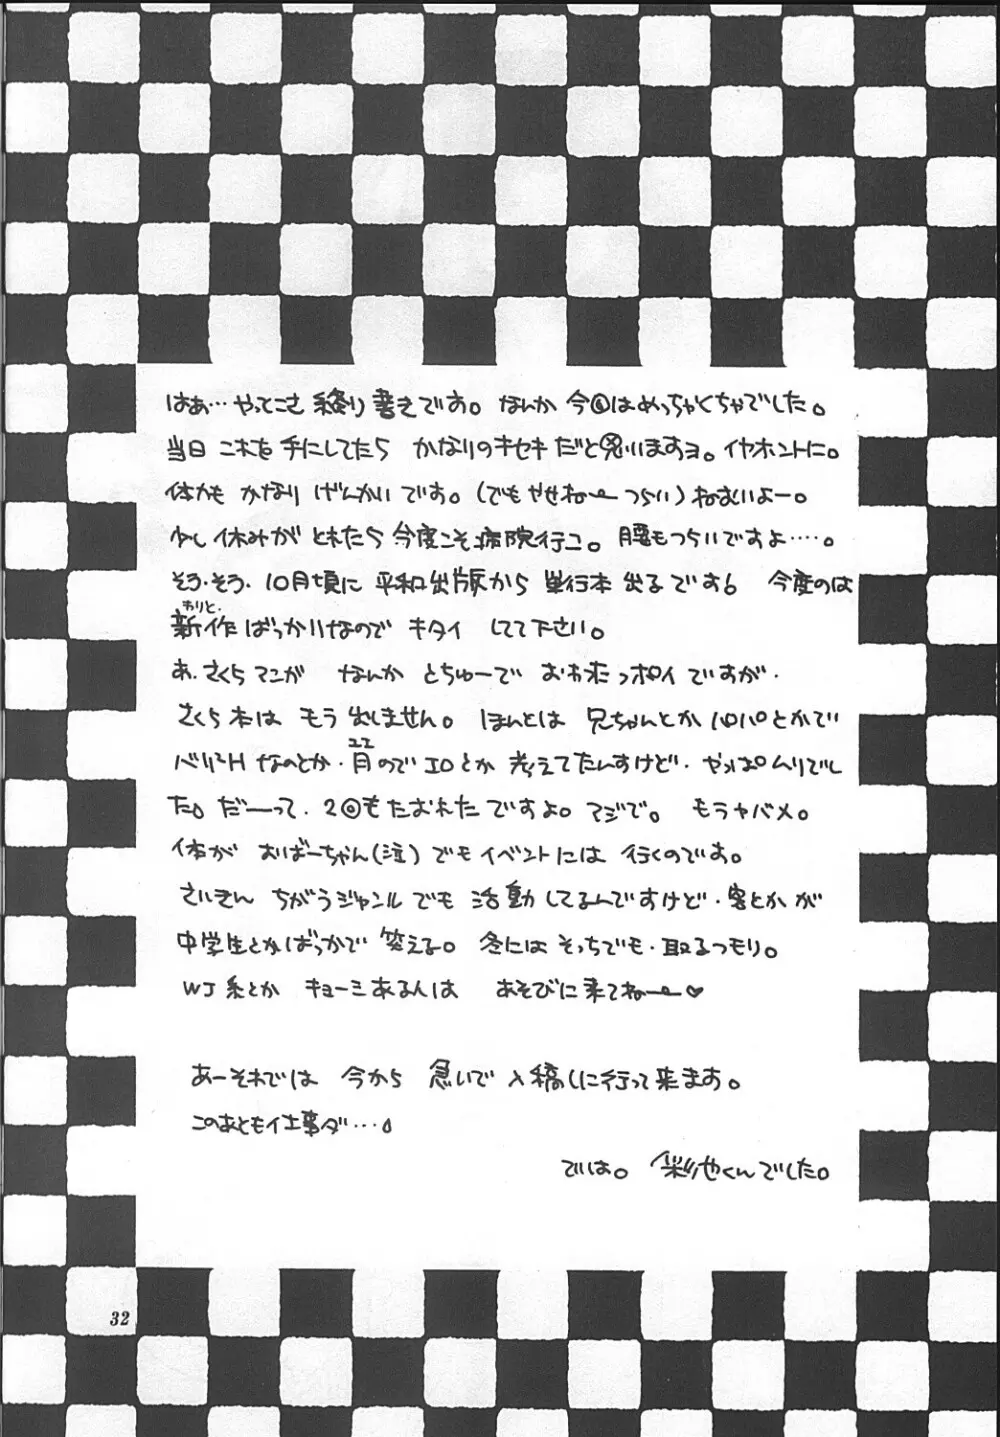 はぁ…やってこさ 終り書きです。なんか 今回はめっちゃくちゃでした。
当日 これを 手にしてたら かなりのキセキ だと思いますョ。イヤホントに。
体力も かなり げんかいです。(でもやせねーつらい)ねむいよー。
少し 休みが とれたら 今度こそ病院行こ。腰もつらいですよ……。
そう・そう・10月頃に 平和出版から 単行本 出るです! 今度のは
わりと
新作 ばっかりなので キタイ してて下さい。
あ、さくらマンガ なんか とちゅーで おわったっポイですが・
さくら本は もう出しません。ほんとは 兄ちゃんとか パパとかで
ユエ
バリ2H なのとか・月のでエロとか 考えてたんすけど・やっぱムリでし
た。だーって・2回もたおれたですよ。マジで。 モウヤバメ。
体が おばーちゃん(泣)でもイベントには 行くのです。
さいきん ちがうジャンルでも 活動してるんですけど・客とかが
中学生とかばっかで 笑える。冬には そっちでも・取るつもり。
WJ系とか キョーミあるんは あそびに来てねー♡
あーそれでは 今から 急いで 入稿しに行って来ます。
このあともイ士事ダ…
では。 彩池くんでした。
32